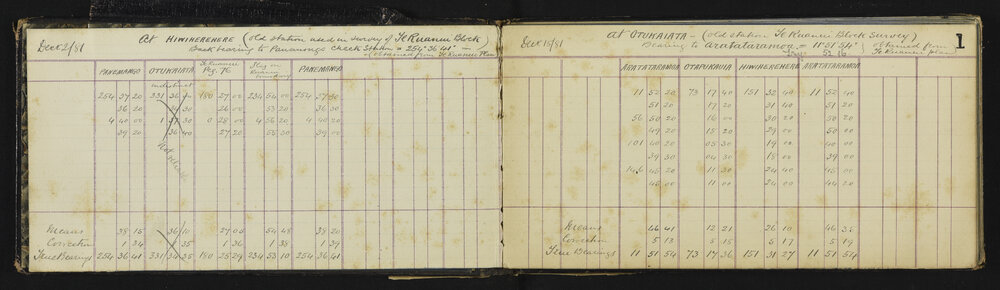 Decr 2/81
At HIWIHEREHERE (old station used in survey of Te Ruanui Block
Back bearing to Panemango Check Station = 254° 36' 41" —
(obtained from Te Ruanui Plan)
PANEMANGO OTUKAIATA Te Ruanui Peg. 76 Flag on Ruanui boundary PANEMANGO
indistinct
254 37 20 331 36 180 27 00 234 54 00 254 37 30
36 20 30 26 00 53 20 36 30
4 40 00 1 30 0 28 00 4 56 20 4 40 20
39 20 36 40 27 20 55 30 39 00
not reliable
Means 38 15 36 10 27 05 54 48 38 20
Correction 1 34 35 1 36 1 38 1 39
True Bearings 254 36 41 331 34 35 180 25 29 234 53 10 254 36 41
Decr 15/81
At OTUKAIATA — (old station Te Ruanui Block Survey)
Bearing to Arataraamoa = 11° 51' 54" } obtained from Te Ruanui plan
1
ARATATARAMOA OTAPUKAWA HIWIHEREHERE ARATATARAMOA
11 52 20 73 17 40 151 32 40 11 52 40
51 20 17 20 31 40 51 20
56 50 20 16 00 30 20 50 20
49 20 15 20 29 00 50 20
101 40 20 05 30 19 00 40 00
39 30 04 30 18 00 39 00
146 45 20 11 30 24 40 46 00
45 00 11 00 24 00 44 20
Means 46 41 12 21 26 10 46 35
Correction 5 13 5 15 5 17 5 19
True Bearings 11 51 54 73 17 36 151 31 27 11 51 54